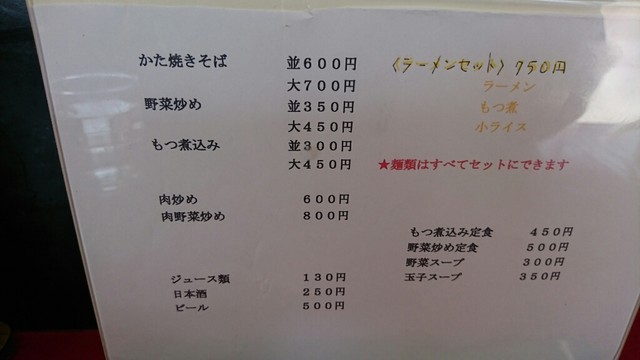 かた焼きそば 並６００円
大７００円
野菜炒め 並３５０円
大４５０円
もつ煮込み 並３００円
大４５０円
肉炒め ６００円
肉野菜炒め ８００円
ジュース類 １３０円
日本酒 ２５０円
ビール ５００円
〈ラーメンセット〉 750円
ラーメン
もつ煮
小ライス
★麺類はすべてセットにできます
もつ煮込み定食 ４５０円
野菜炒め定食 ５００円
野菜スープ ３００円
玉子スープ ３５０円